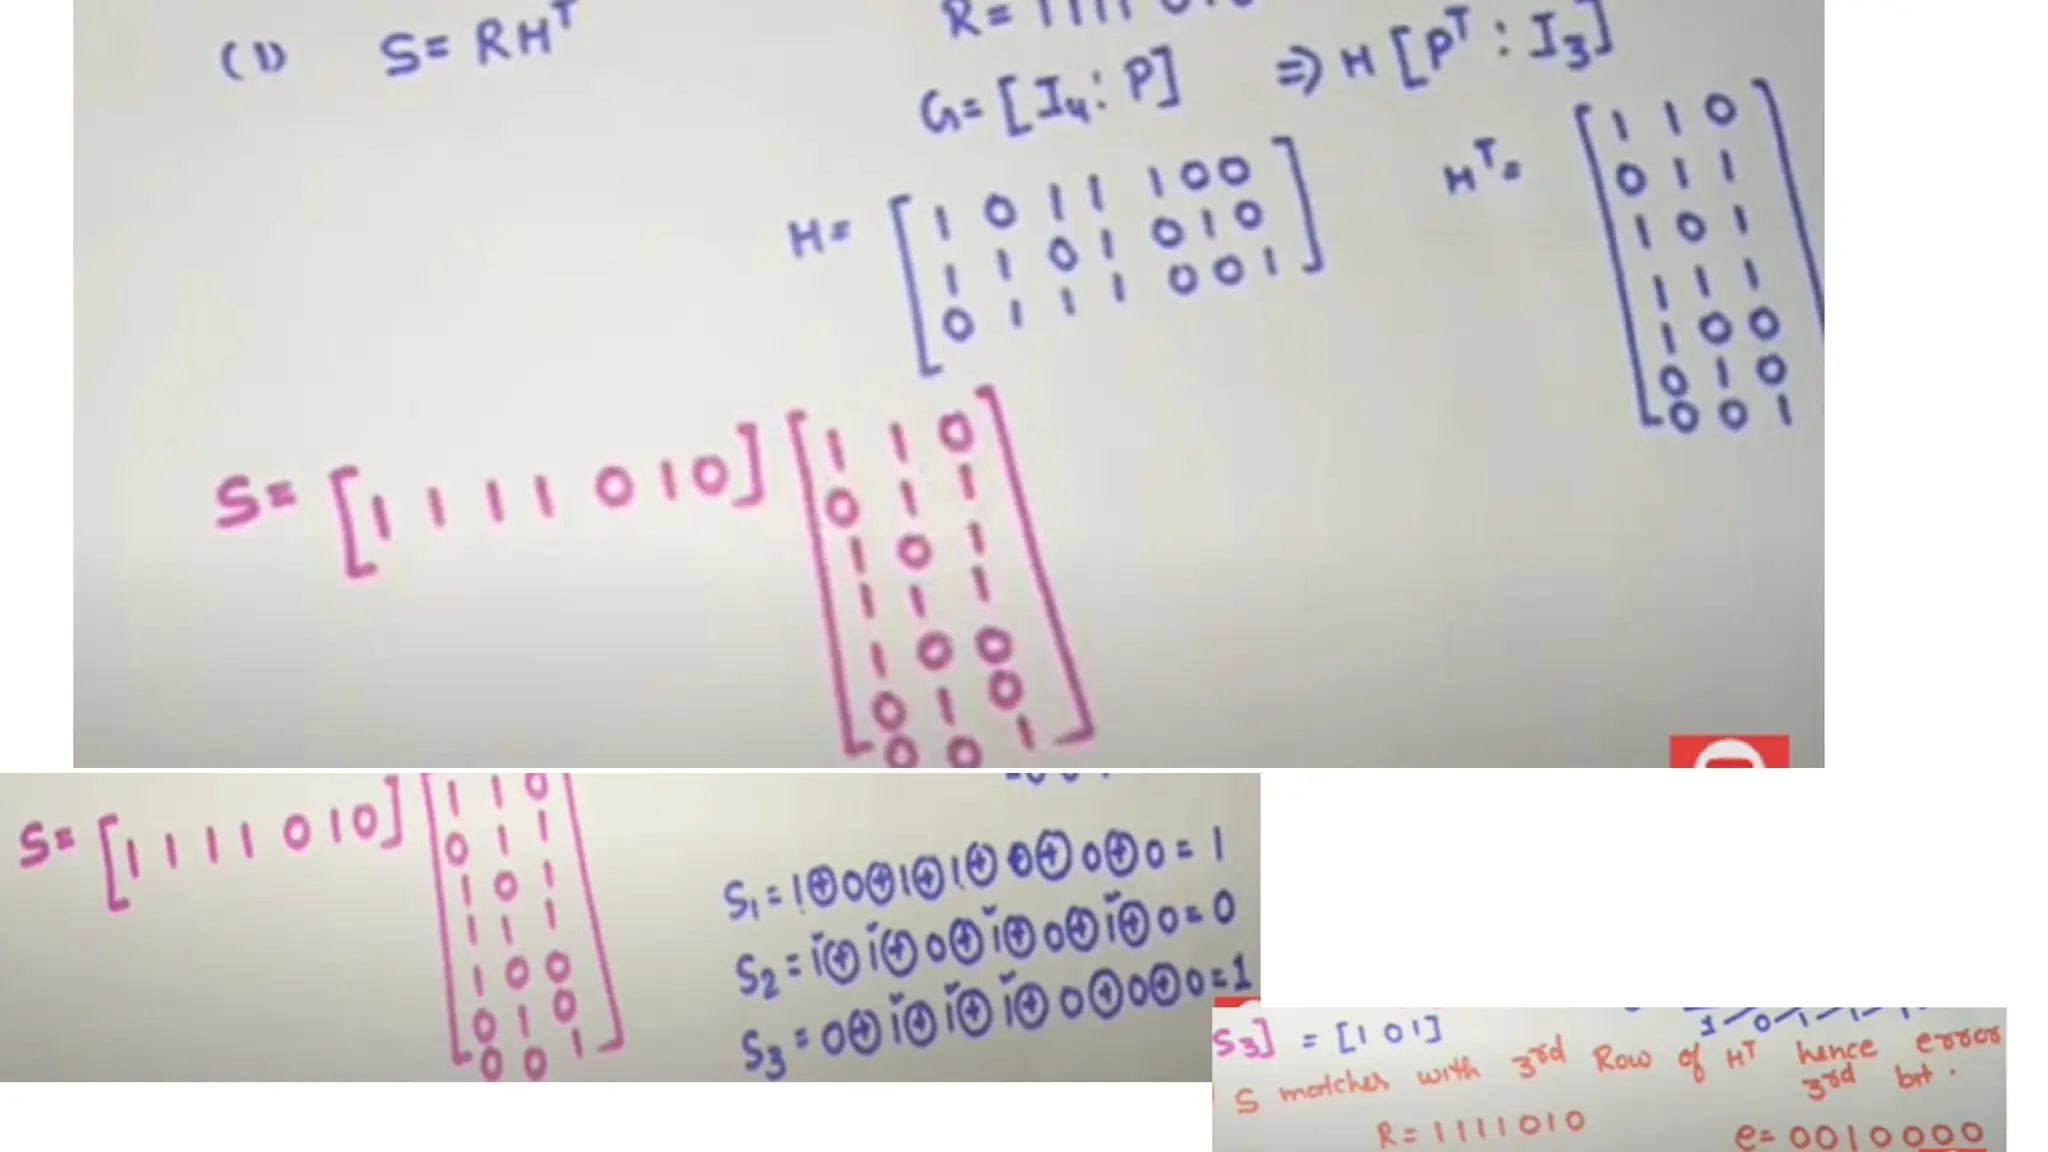 (1) S= RHᵀ
R= 1111 010
G= [I₄ : P] ⇒ H [Pᵀ : I₃]
H= [ 1 0 1 1 1 0 0
1 1 0 1 0 1 0
0 1 1 1 0 0 1 ]
Hᵀ= [ 1 1 0
0 1 1
1 0 1
1 1 1
1 0 0
0 1 0
0 0 1 ]
S= [1 1 1 1 0 1 0] [ 1 1 0
0 1 1
1 0 1
1 1 1
1 0 0
0 1 0
0 0 1 ]
S= [1 1 1 1 0 1 0] [ 1 1 0
0 1 1
1 0 1
1 1 1
1 0 0
0 1 0
0 0 1 ]
S₁ = 1⊕0⊕1⊕1⊕0⊕0⊕0 = 1
S₂ = 1⊕1⊕0⊕1⊕0⊕1⊕0 = 0
S₃ = 0⊕1⊕1⊕1⊕0⊕0⊕0 = 1
S₃] = [1 0 1]
S matches with 3rd Row of Hᵀ hence error
3rd bit.
R= 1111010
e= 0010000